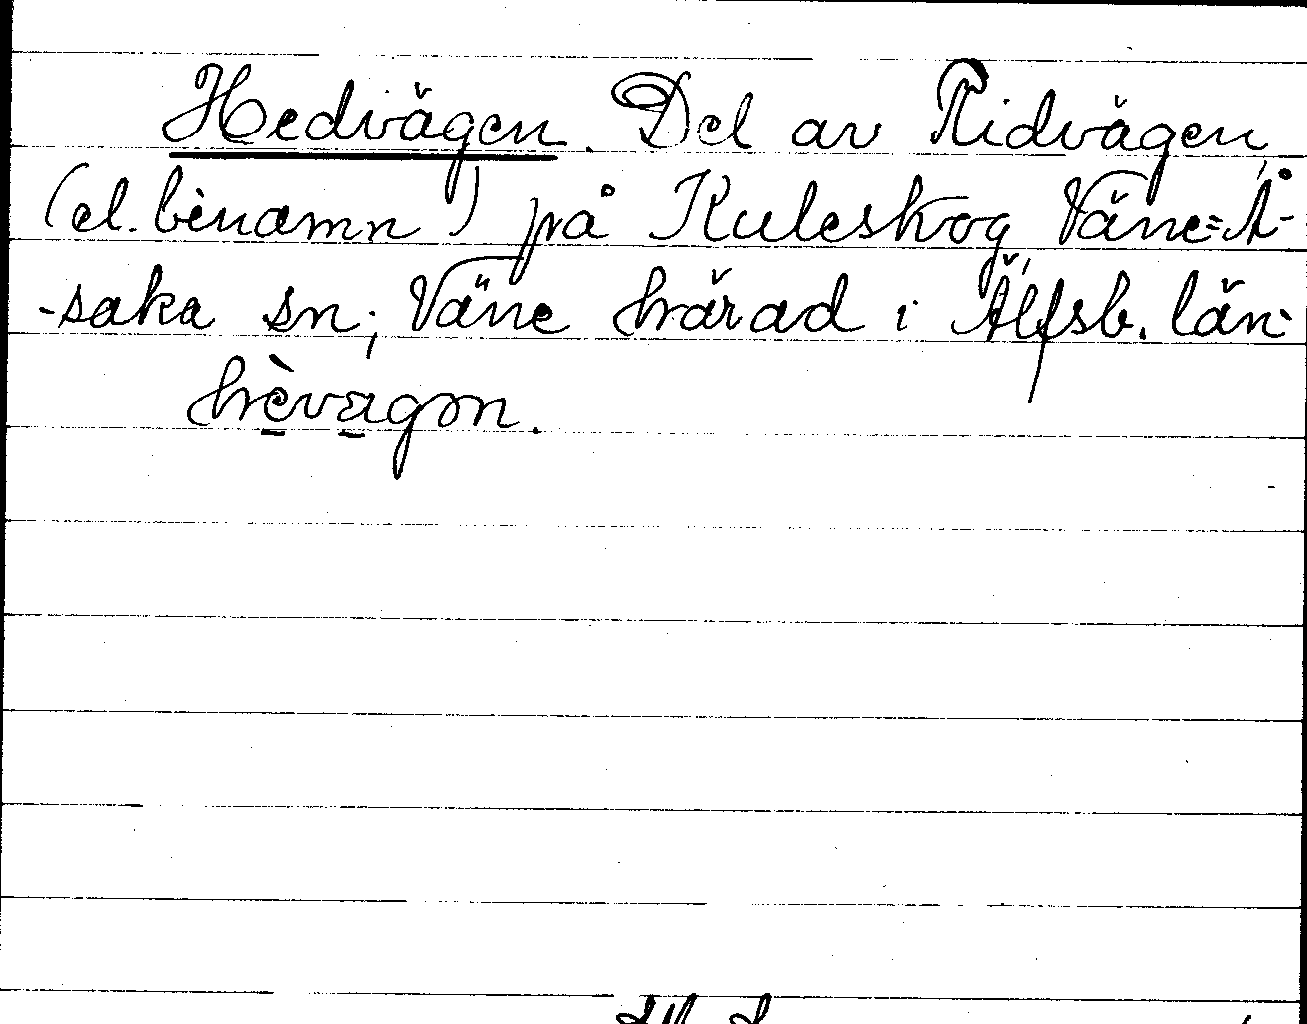 Hedvägen. Del av Ridvägen,
(el. binamn) på Kuleskog, Väne=Å-
-saka sn; Väne härad i Älfsb. län:
hèvagən.